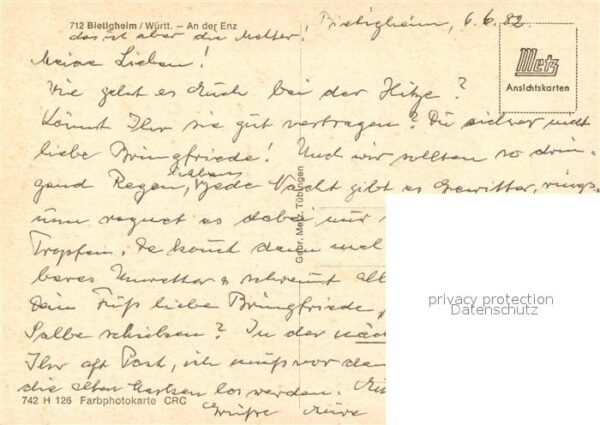 712 Bietigheim / Württ. – An der Enz
Bietigheim, 6.6.82
das ist aber die Metter!
Metz
Ansichtskarten
Meine Lieben!
Wie geht es Euch bei der Hitze?
Könnt Ihr sie gut vertragen? Du sicher nicht
liebe Bringfriede! Und wir sollten so drin-
gend Regen haben, jede Nacht gibt es Gewitter, rings-
um regnet es dabei nur
Tropfen. Da kommt dann mal
bares Unwetter & schwemmt all
Dein Fuß liebe Bringfriede
Salbe schicken? In der näch
Ihr oft Post, ich muß vor dem
die alten Marken los werden.
Grüße Eure
Gebr. Metz, Tübingen
742 H 126 Farbphotokarte CRC
privacy protection
Datenschutz